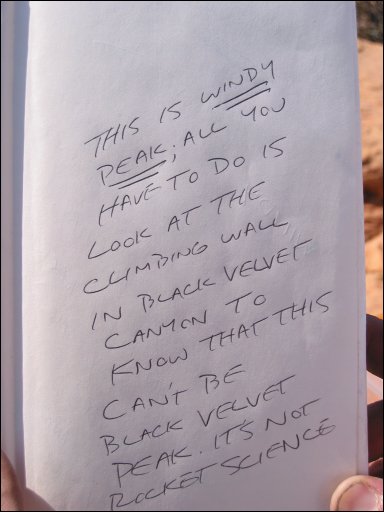 THIS IS WINDY
PEAK; ALL YOU
HAVE TO DO IS
LOOK AT THE
CLIMBING WALL
IN BLACK VELVET
CANYON TO
KNOW THAT THIS
CAN'T BE
BLACK VELVET
PEAK. IT'S NOT
ROCKET SCIENCE